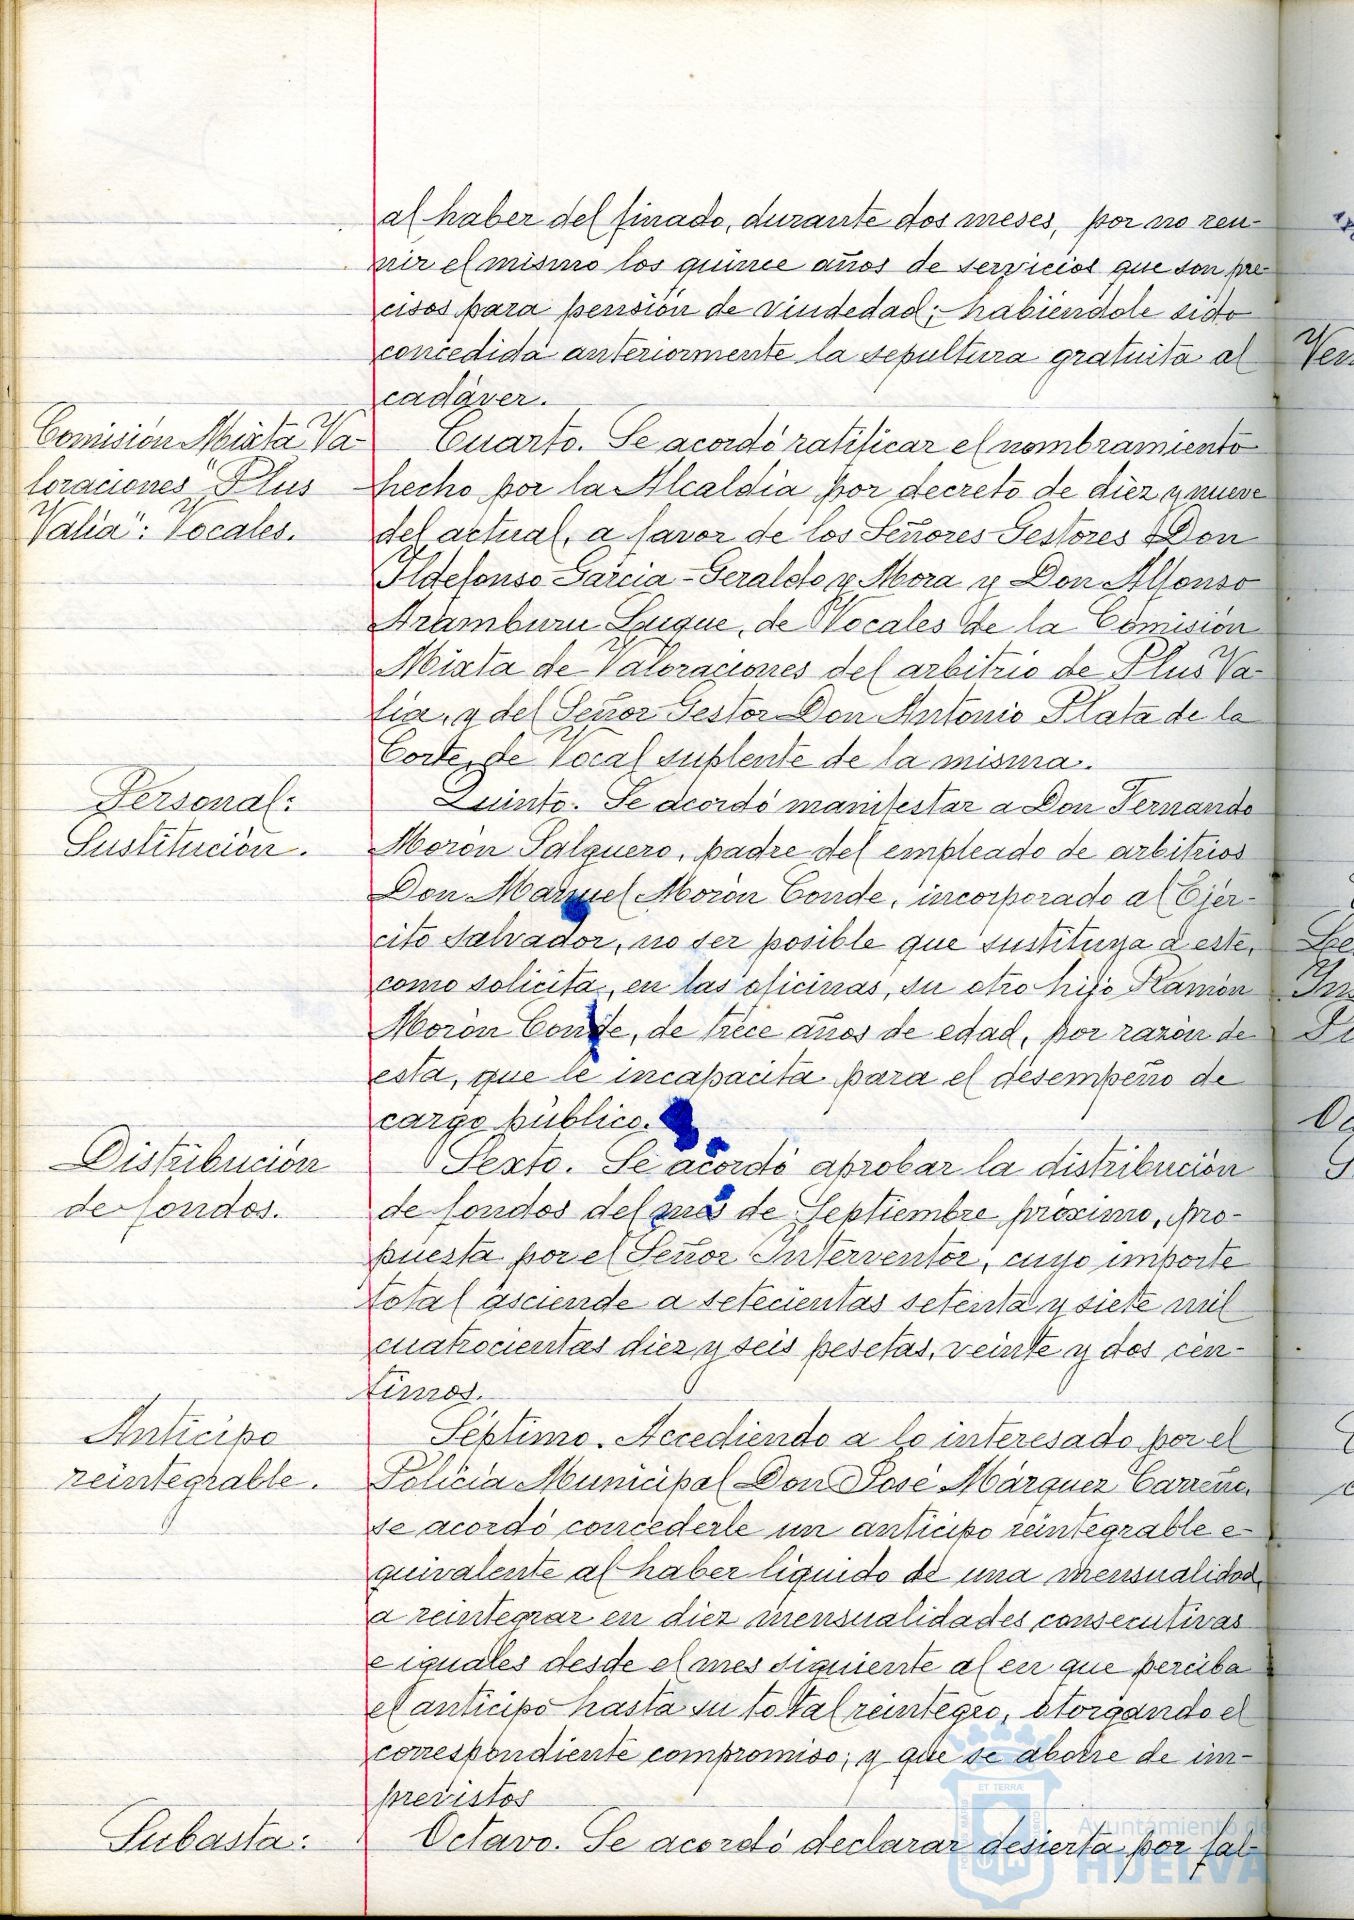 al haber del finado, durante dos meses, por no reu-
nir el mismo los quince años de servicios que son pre-
cisos para pensión de viudedad; habiéndole sido
concedida anteriormente la sepultura gratuita al
cadáver.
Comisión Mixta Va-
loraciones "Plus
Valía": Vocales.
Cuarto. Se acordó ratificar el nombramiento
hecho por la Alcaldía por decreto de diez y nueve
del actual, a favor de los Señores Gestores Don
Ildefonso García-Geraldo y Mora y Don Alfonso
Aramburu Luque, de Vocales de la Comisión
Mixta de Valoraciones del arbitrio de Plus Va-
lía, y del Señor Gestor Don Antonio Plata de la
Corte, de Vocal suplente de la misma.
Personal:
Sustitución.
Quinto. Se acordó manifestar a Don Fernando
Morón Salguero, padre del empleado de arbitrios
Don Manuel Morón Conde, incorporado al Ejér-
cito Salvador, no ser posible que sustituya a este,
como solicita, en las oficinas, su otro hijo Ramón
Morón Conde, de trece años de edad, por razón de
esta, que le incapacita para el desempeño de
cargo público.
Distribución
de fondos.
Sexto. Se acordó aprobar la distribución
de fondos del mes de Septiembre próximo, pro-
puesta por el Señor Interventor, cuyo importe
total asciende a setecientas setenta y siete mil
cuatrocientas diez y seis pesetas, veinte y dos cén-
timos.
Anticipo
reintegrable.
Séptimo. Accediendo a lo interesado por el
Policía Municipal Don José Márquez Carreño,
se acordó concederle un anticipo reintegrable e-
quivalente al haber líquido de una mensualidad,
a reintegrar en diez mensualidades consecutivas
e iguales desde el mes siguiente al en que perciba
el anticipo hasta su total reintegro, otorgando el
correspondiente compromiso; y que se abone de im-
previstos
Subasta:
Octavo. Se acordó declarar desierta por fal-
Ayuntamiento de
HUELVA